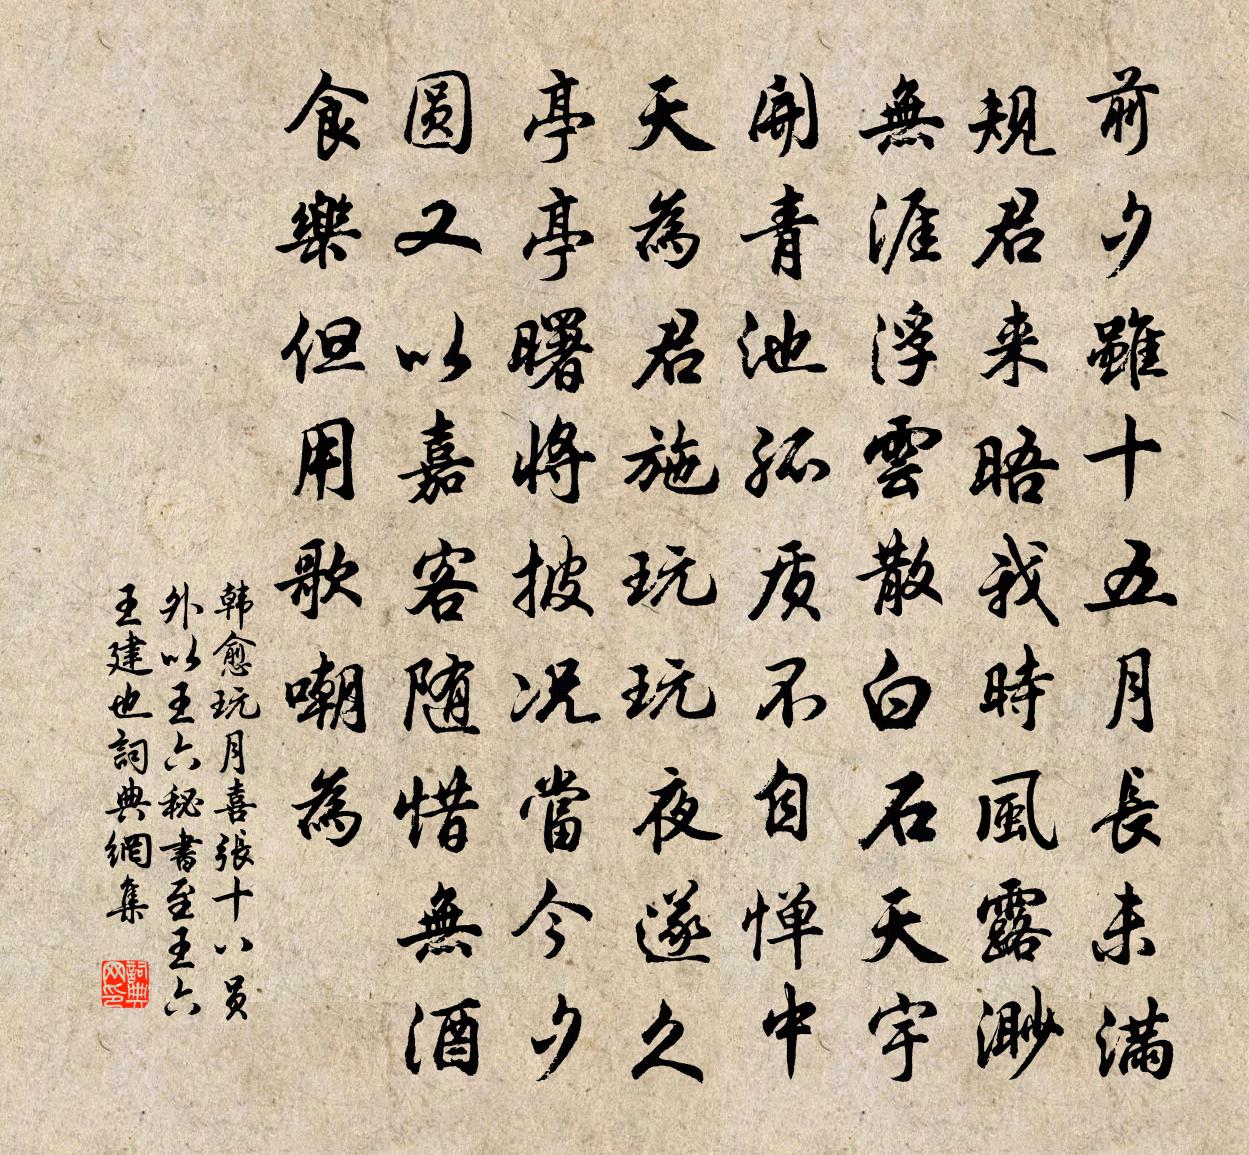 前夕雖十五月長未滿
規君来晤我時風露渺
無涯浮雲散白石天宇
開青池孤质不自惮中
天為君施玩玩夜遂久
亭亭曙將披况當今夕
圓又以嘉客随惜無酒
食樂但用歌嘲為
韩愈玩月喜張十八员
外以王六秘書至王六
王建也詞典網集
詞典
网印